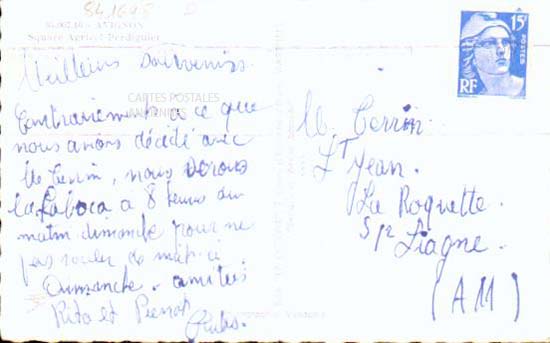 84.1648
84.007.10 - AVIGNON
Square Agricol Perdiguier
Meilleurs souvenirs
CARTES POSTALES
ANCIENNES
Contrairement à ce que
nous avions décidé avec
Me Cerrin, nous serons
la Laboca à 8 heures du
matin dimanche pour ne
pas rouler de
Dimanche. amitiés
Rita et Pierrot
15F
POSTES
RF
M. Cerrin.
St Jean.
La Roquette.
S/r Siagne.
(AM)